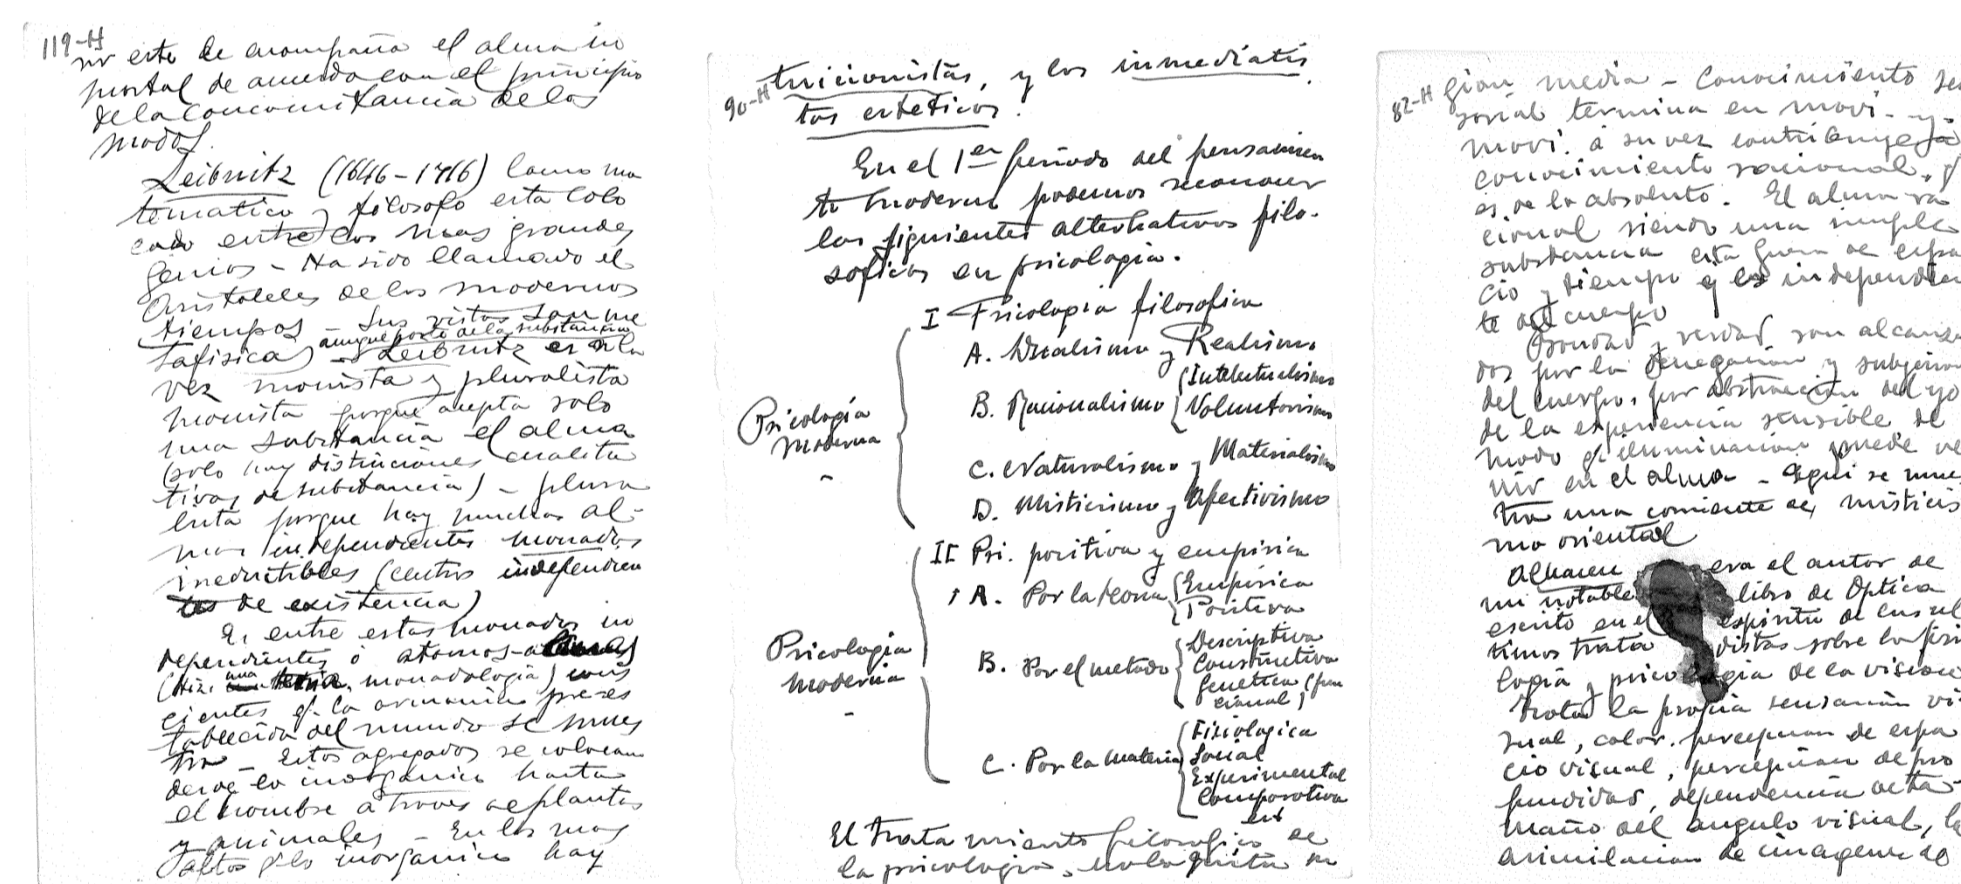 119-H
este de acompaña el alma in
mortal de acuerdo con el principio
de la concomitancia de los
modos.
Leibnitz (1646-1716) Como ma
tematico y filosofo esta colo
cado entre los mas grandes
genios - Ha sido llamado el
Aristoteles de los modernos
tiempos - Sus vistas son me
tafisica)
aunque parte de la substancia
Leibnitz es a la
vez monista y pluralista
monista porque acepta solo
una substancia el alma
(solo hay distinciones cualita
tivas de substancia) - plura
lista porque hay muchas al-
mas independientes monadas
ineductibles (centros independien
tes de existencia)
Es entre estas monadas in
dependientes ó atomos-almas
una monadologia)
cientes q. la armonia pre-es
tablecida del mundo se mues
tra - Estos agregados se colocan
desde lo inorganico hasta
el hombre a traves de plantas
y animales - En los mas
altos q lo inorganico hay
90-H
tuicionistas, y los inmediatis
tas esteticos.
En el 1er periodo del pensamien
to moderno podemos reconocer
las siguientes alternativas filo-
soficas en psicologia.
I Psicologia filosofica
A. Idealismo y Realismo
B. Racionalismo
Intelectualismo
Voluntarismo
Psicología
moderna
C. Naturalismo y Materialismo
D. Misticismo y Afectivismo
II Psi. positiva y empirica
A. Por la teoria
Empirica
Positiva
Psicologia
moderna
B. Por el metodo
Descriptiva
Constructiva
Genetica (fun
cional)
C. Por la materia
Fisiologica
Social
Experimental
Comparativa
etc
El tratamiento filosofico de
la psicologia, no
82-H
gion media - Conocimiento sen
sorial termina en movi. y
movi. á su vez contribuye a
conocimiento racional, q
es de lo absoluto. El alma ra
cional siendo una simple
substancia esta fuera de espa
cio y tiempo y es independien
te del cuerpo
Bondad y verdad son alcanza
dos por la denegacion y subyecion
del cuerpo, por abstraccion del yo
de la experiencia sensible de
modo q. iluminacion puede ve
nir en el alma - Aqui se mues
tra una corriente de misticis
mo oriental
Alhacen era el autor de
un notable libro de Optica
escrito en el espiritu de
trata vistas sobre la fisi
logia y psicologia de la vision
Trata la propia sensacion vi
sual, color, percepcion de espa
cio visual, percepcion de pro
fundidad, dependencia de ta-
maño del angulo visual, la
asimilacion de imagenes de